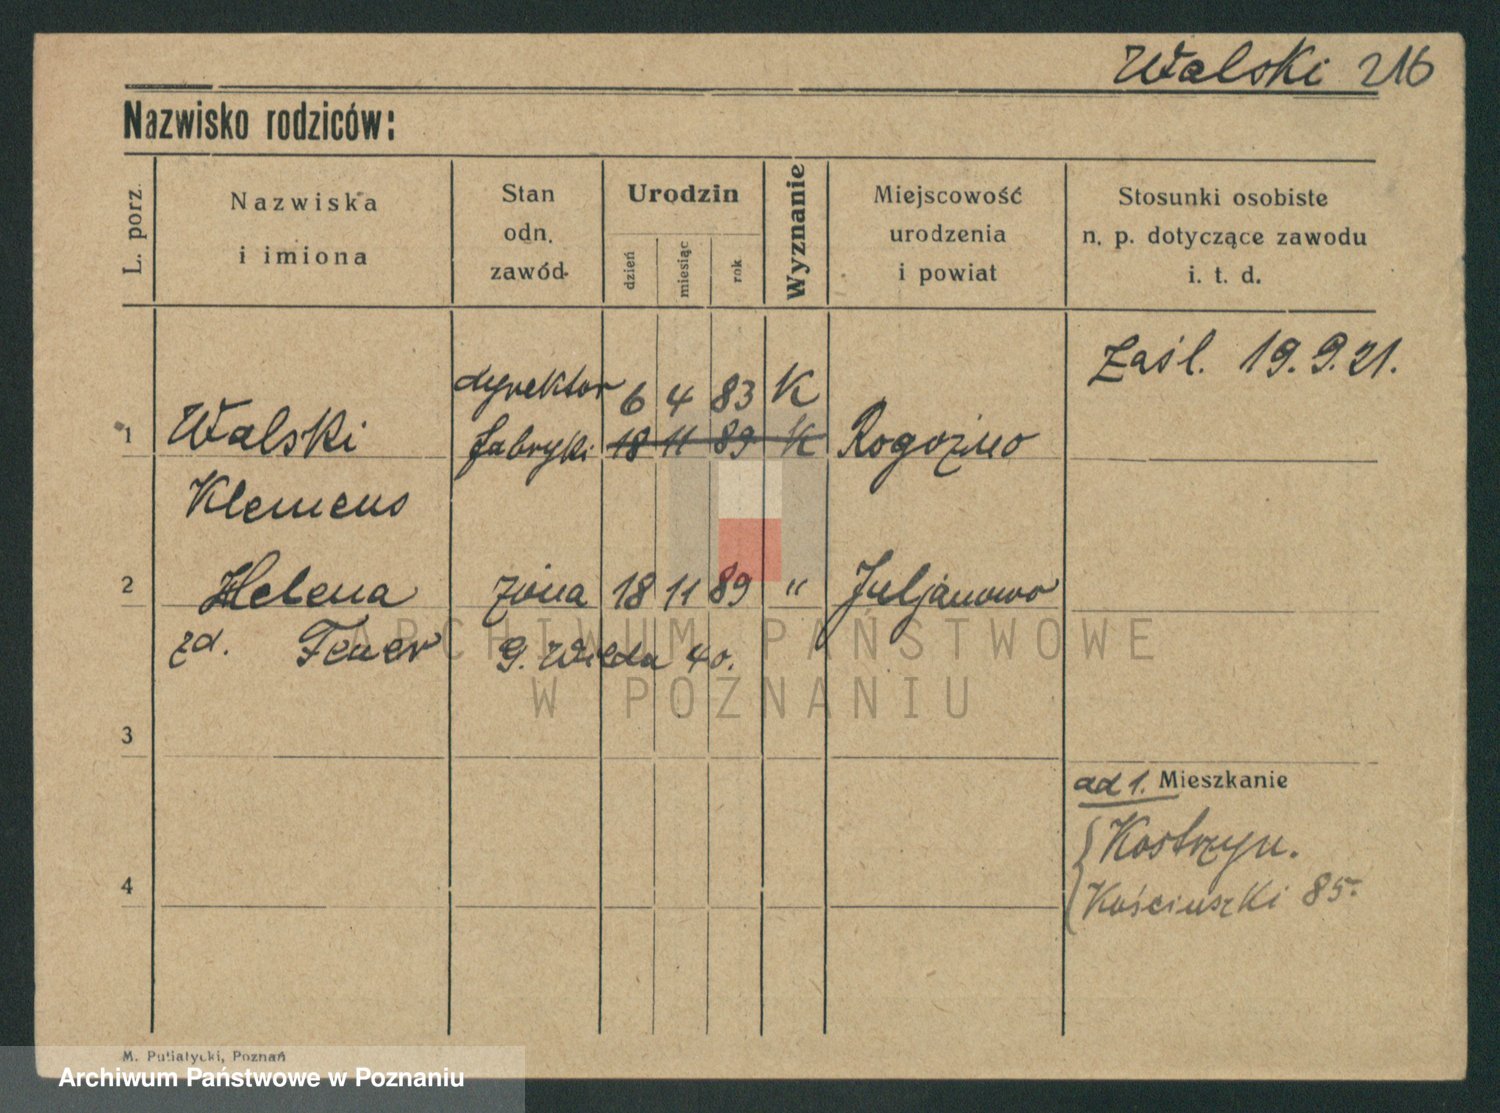 Walski 216
Nazwisko rodziców:
L. porz.
Nazwiska
i imiona
Stan
odn.
zawód
Urodzin
dzień
miesiąc
rok
Wyznanie
Miejscowość
urodzenia
i powiat
Stosunki osobiste
n. p. dotyczące zawodu
i. t. d.
Zaśl. 19.9.21.
dyrektor 6 4 83 K
1 Walski fabryki 18 11 89 K Rogoźno
Klemens
2 Helena żona 18 11 89 " Juljanowo
zd. G. Wilda 40.
ARCHIWUM PAŃSTWOWE
W POZNANIU
3
ad 1. Mieszkanie
Kostrzyn.
4
Kościuszki 85.
M. Putiatycki, Poznań
Archiwum Państwowe w Poznaniu